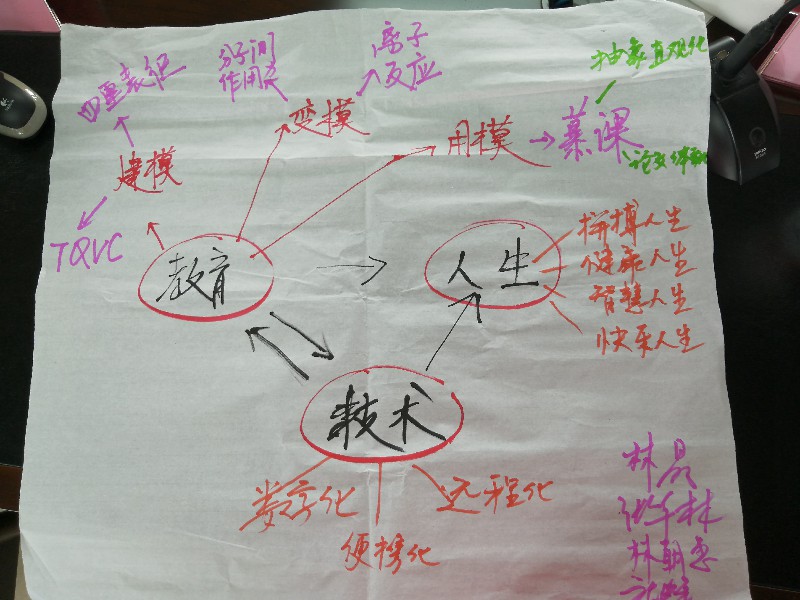 四重表征
分子间
作用力
离子
反应
抽象直观化
建模
变模
用模
慕课
TQVC
教育
人生
拼搏人生
健康人生
智慧人生
快乐人生
技术
数字化
便携化
远程化
林晨
张千林